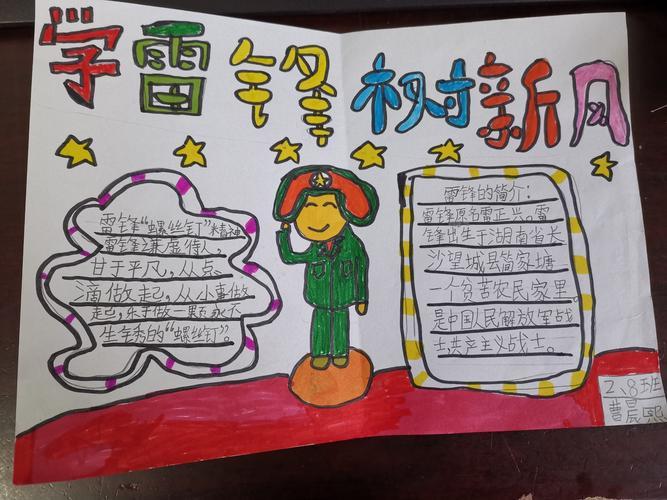 学雷锋树新风
雷锋“螺丝钉”精神
雷锋之谦虚待人
甘于平凡，从点
滴做起，从小事做
起，乐于做一颗永不
生锈的“螺丝钉”。
雷锋的简介：
雷锋原名雷正兴，雷
锋出生于湖南省长
沙望城县简家塘
一个贫苦农民家里。
是中国人民解放军战
士共产主义战士。
2、8班
曹晨熙